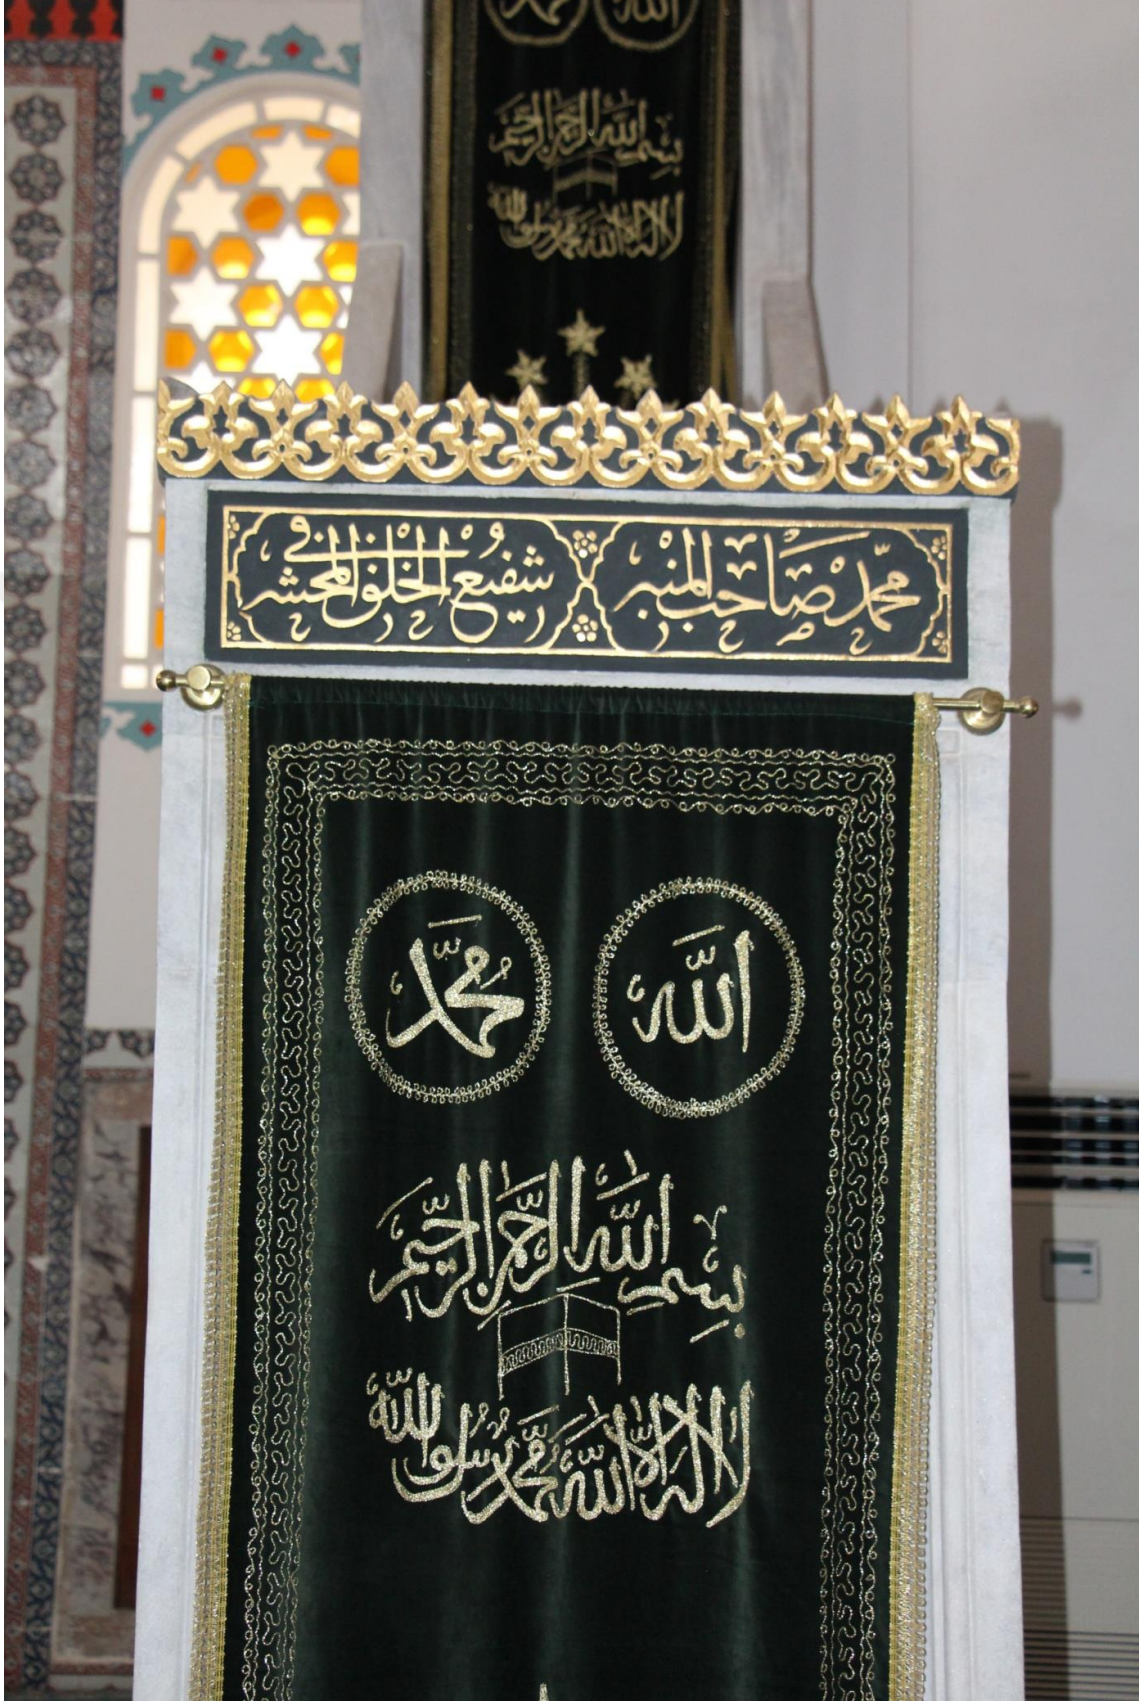 الله محمد
بسم الله الرحمن الرحيم
لا اله الا الله محمد رسول الله
محمد صاحب المنبر شفيع الخلق في المحشر
الله محمد
بسم الله الرحمن الرحيم
لا اله الا الله محمد رسول الله